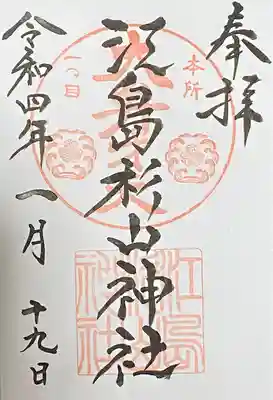 奉拝
本所
一つ目
江島杉山神社
江島杉山神社
令和四年一月十九日